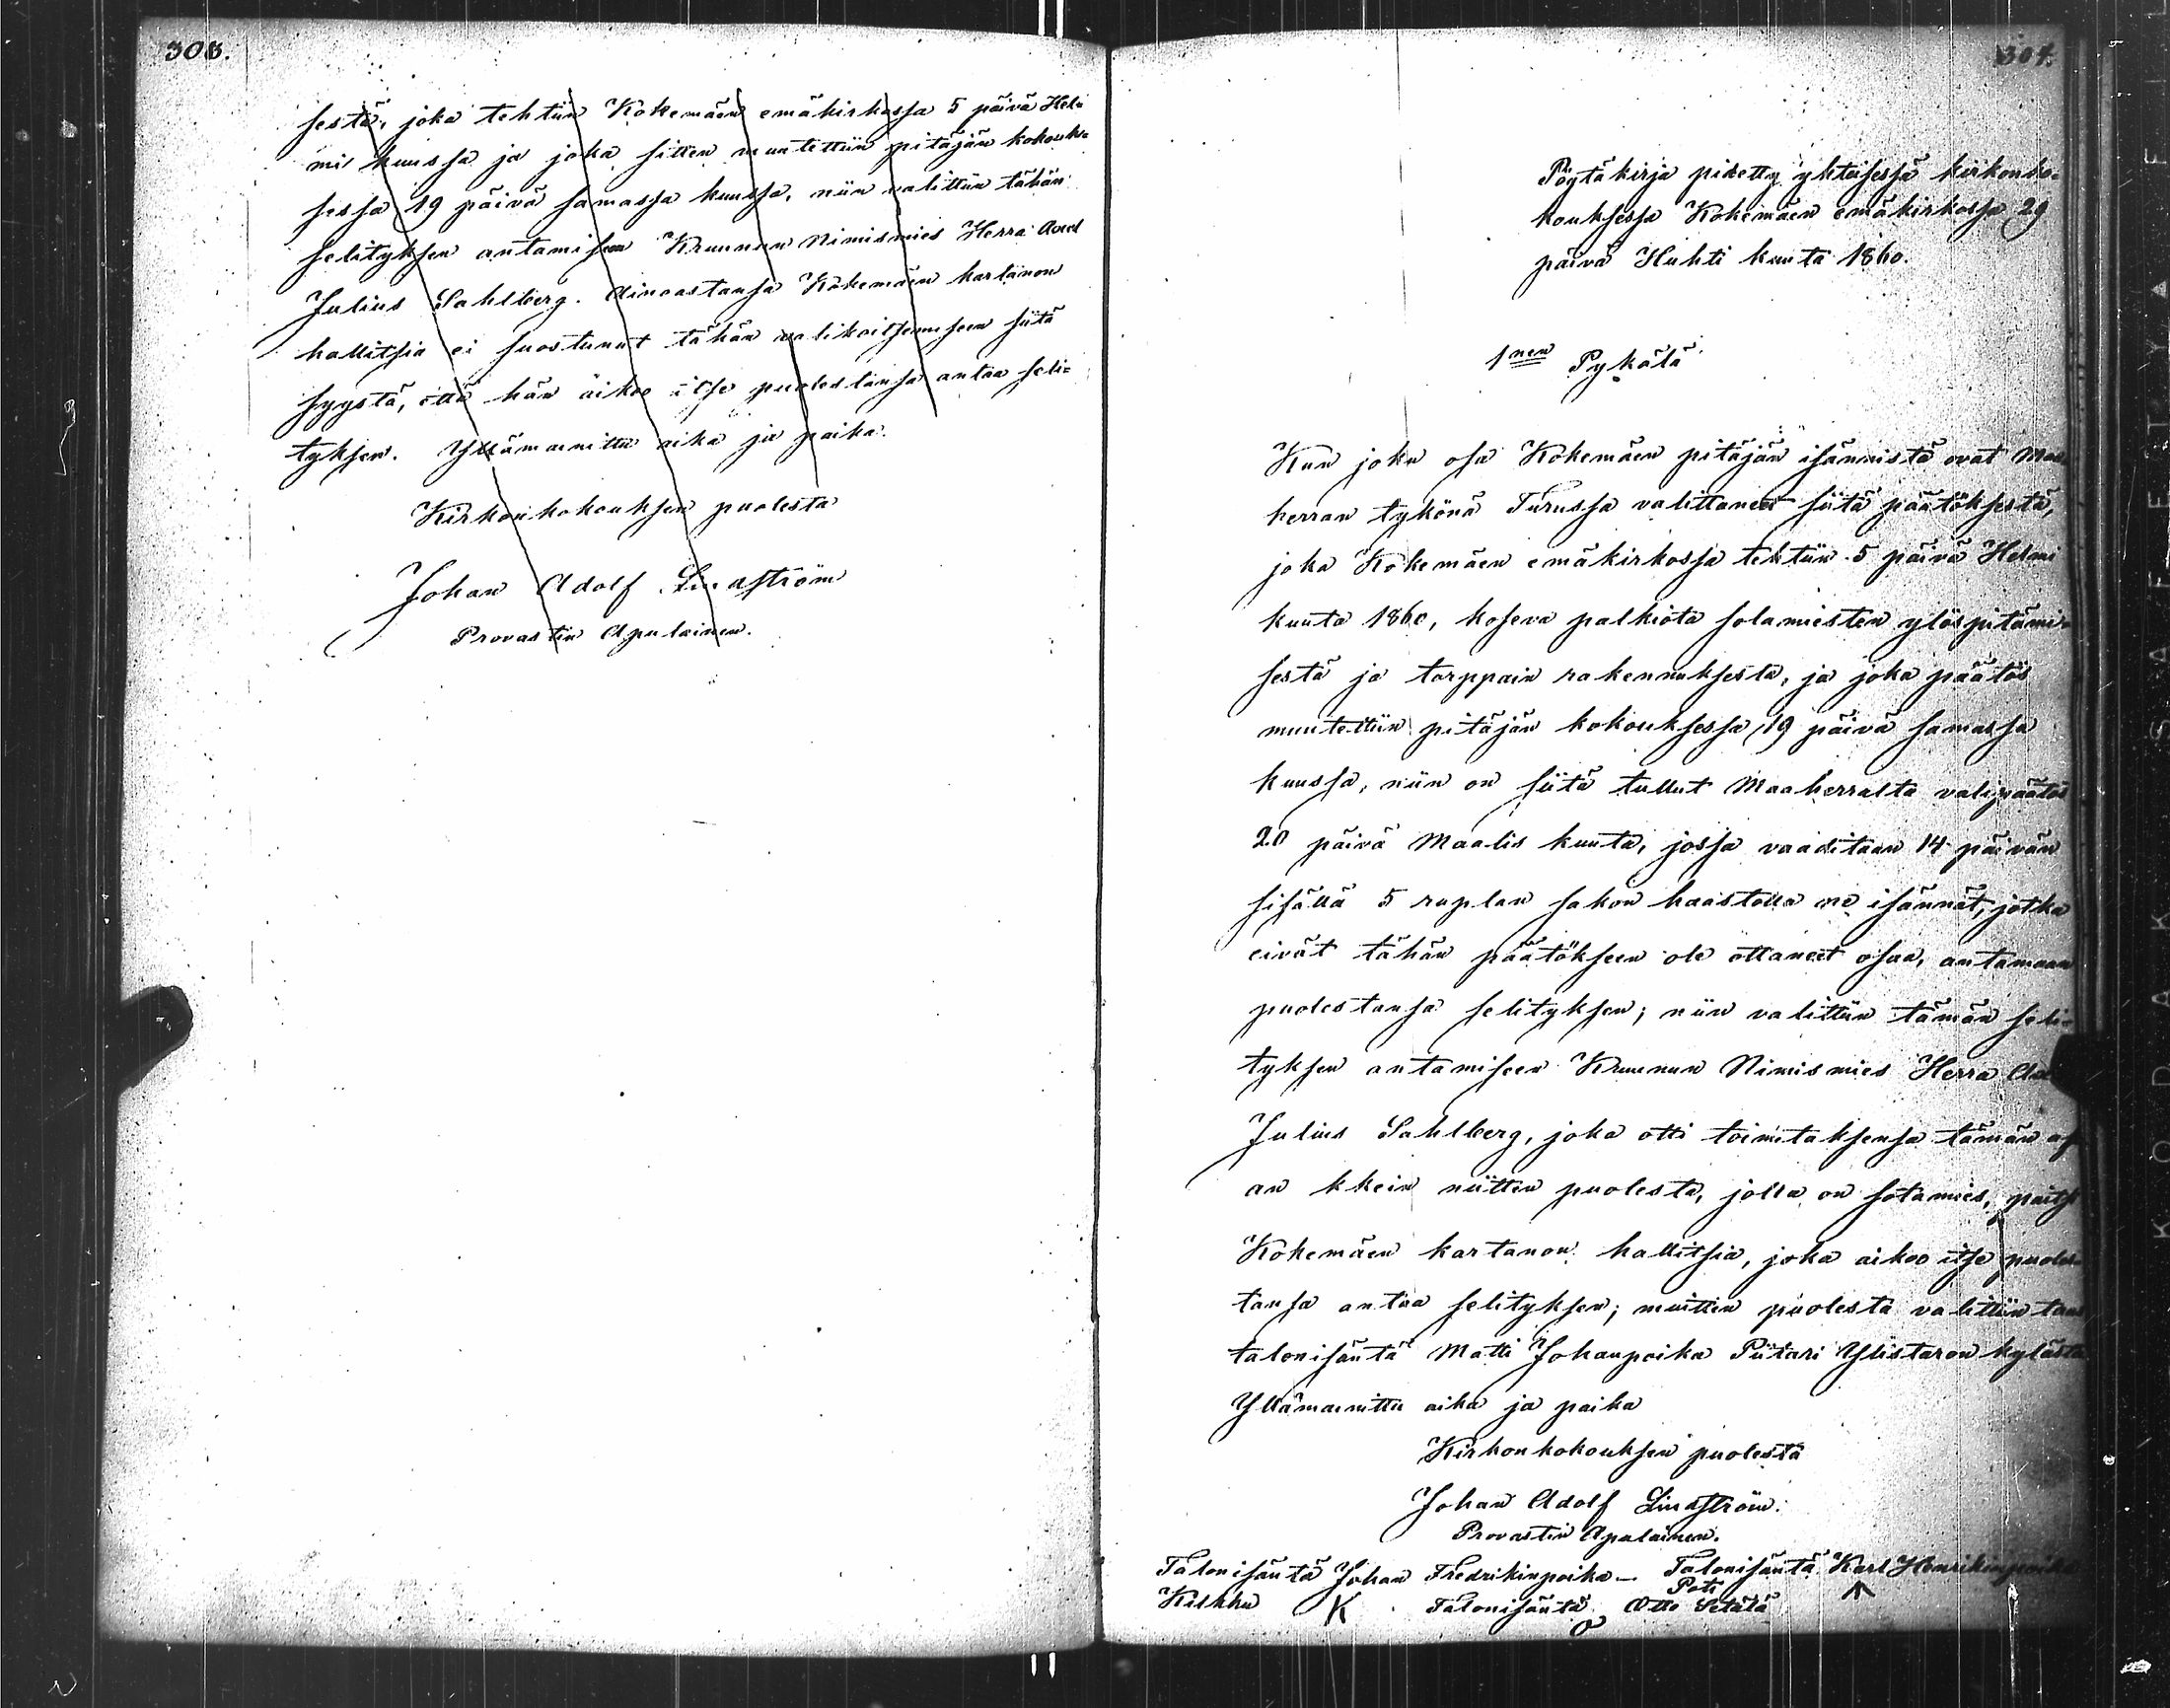 303.
sestä, joka tehtiin Kokemäen emäkirkossa 5 päivä Hel-
mi kuussa ja joka sitten muutettiin pitäjän kokouk-
sessa 19 päivä samassa kuussa, niin valittiin tähän
selityksen antamiseen Kruunun Nimismies Herra Axel
Julius Sahlberg. Ainoastansa Kokemäen kartanon
hallitsia ei suostunut tähän valikoitsemiseen siitä
syystä, että hän aikoo itse puolestansa antaa seli-
tyksen. Yllämainittu aika ja paika.
Kirkonkokouksen puolesta
Johan Adolf Lindström
Provastin Apulainen.
304.
Pöytäkirja pidetty yhteisessä kirkonko-
kouksessa Kokemäen emäkirkossa 29
päivä Huhti kuuta 1860.
1nen Pykälä
Kun joku osa Kokemäen pitäjän isännistä ovat Maa
herran tykönä Turussa valittaneet siitä päätöksestä,
joka Kokemäen emäkirkossa tehtiin 5 päivä Helmi
kuuta 1860, koseva palkiota solamiesten ylöspitämi-
sestä ja torppain rakennuksesta, ja joka päätös
muutettiin pitäjän kokouksessa 19 päivä samassa
kuussa, niin on siitä tullut Maaherralta välipäätös
20 päivä Maalis kuuta, jossa vaaditaan 14 päivän
sisällä 5 ruplan sakon haastolla ne isännät, jotka
eivät tähän päätökseen ole ottaneet osaa, antamaan
puolestansa selityksen; niin valittiin tämän seli-
tyksen antamiseen Kruunun Nimismies Herra
Julius Sahlberg, joka otti toimitaksensa tämän as
an kkein niitten puolesta, jolla on sotamies, paits
Kokemäen kartanon hallitsia, joka aikoo itse puoles-
tansa antaa selityksen; muitten puolesta valittiin
talonisäntä Matti Johanpoika Piitari Ylistaron kylästä
Yllämainittu aika ja paika
Kirkonkokouksen puolesta
Johan Adolf Lindström.
Provastin Apulainen.
Talonisäntä Johan Fredrikinpoika – Talonisäntä Karl Henrikinpoika
Kiskku K Poti
Talonisäntä Otto Setälä